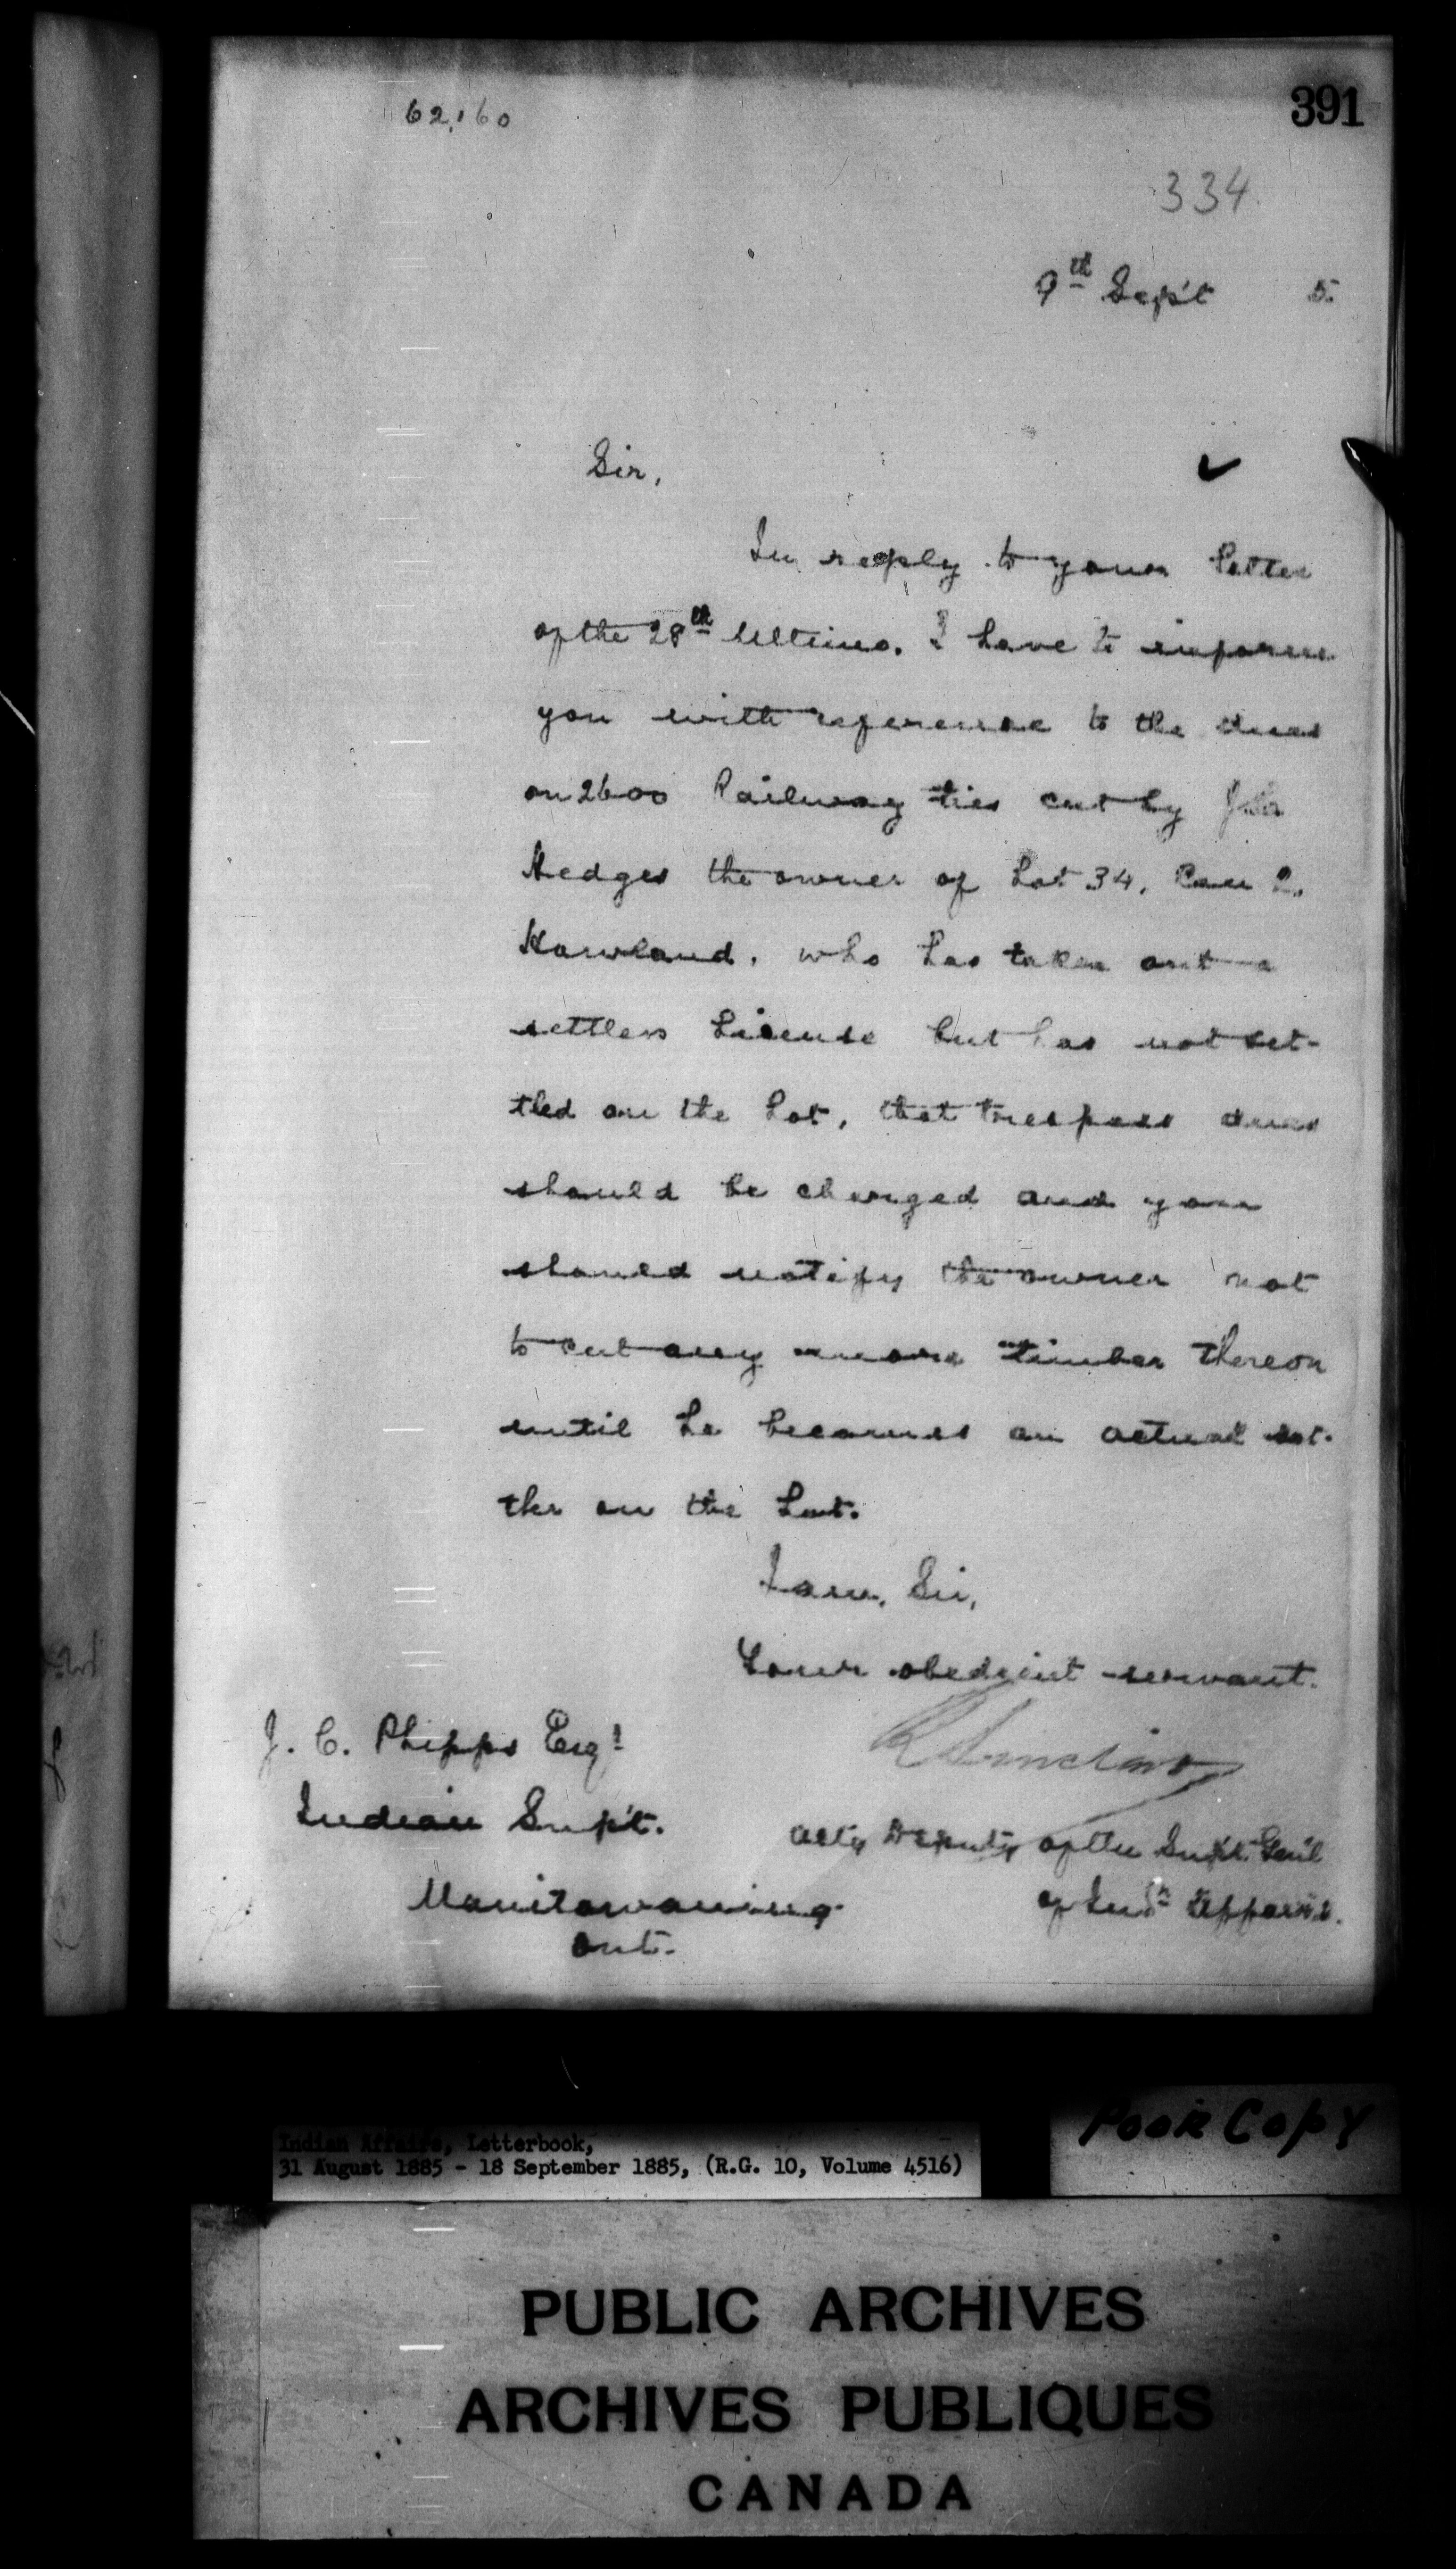 62,160
391
334
9th Sept 5.
Sir,
In reply to your letter
of the 28th Ultimo. I have to inform
you with reference to the dues
on 2600 Railway ties cut by
Hedges the owner of Lot 34, Con 2.
Howland, who has taken out a
settlers License but has not set-
tled on the Lot, that trespass dues
should be charged and you
should notify the owner not
to cut any more timber thereon
until he becomes an actual set-
tler on the Lot.
I am, Sir,
Your obedient servant.
R Sinclair
J. C. Phipps Esqr
Indian Supt.
Manitowaning
Ont.
Actg Deputy of the Supt. Genl
of Indn Affairs.
Poor Copy
Indian Affairs, Letterbook,
31 August 1885 - 18 September 1885, (R.G. 10, Volume 4516)
PUBLIC ARCHIVES
ARCHIVES PUBLIQUES
CANADA